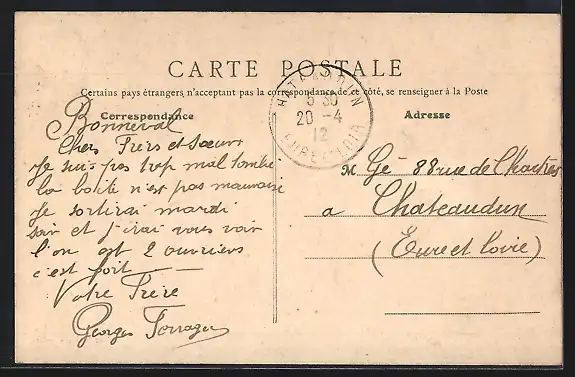 CARTE POSTALE
Certains pays étrangers n'acceptant pas la correspondance de ce côté, se renseigner à la Poste
Correspondance
Adresse
5 30
20 - 4
12
EURE-ET-LOIR
Bonneval
Chers Frères et Sœurs
Je suis pas trop mal tombé
la boîte n'est pas mauvaise
Je sortirai mardi
soir et j'irai vous voir
l'on est 2 ouvriers
c'est
Votre Frère
Georges
M Gé 88 rue de Chartres
a Chateaudun
(Eure et Loire)